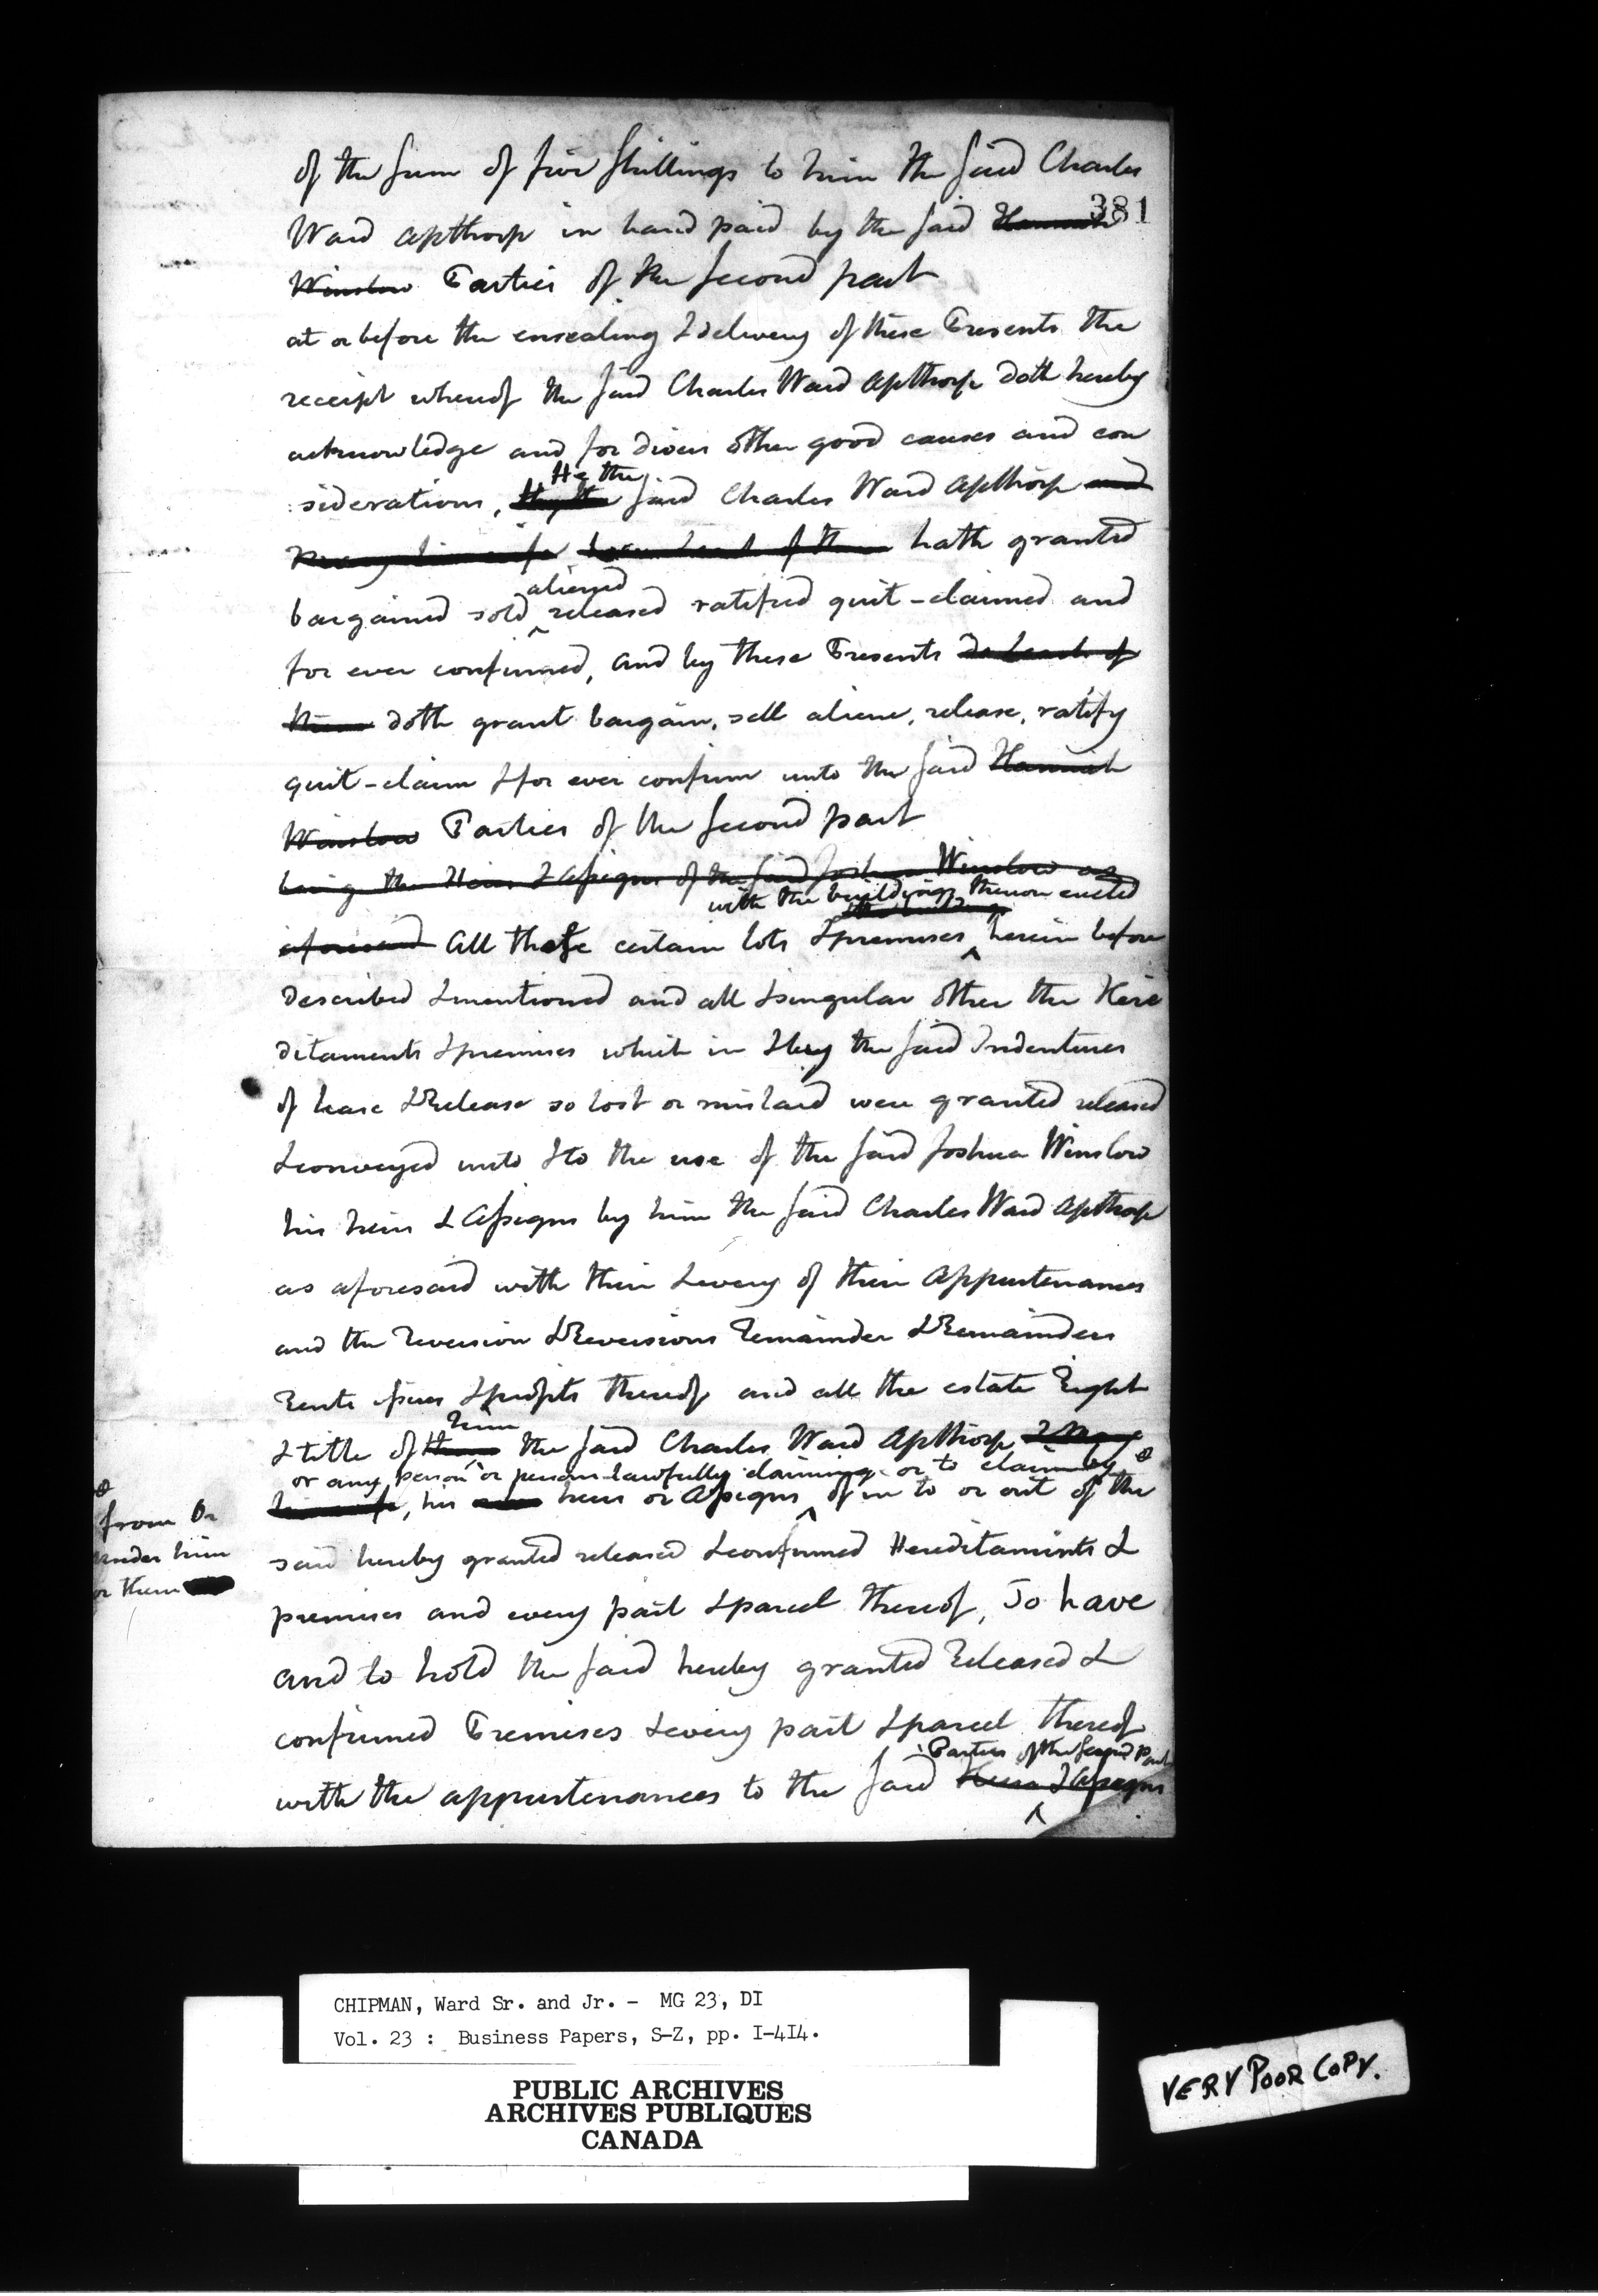 381
of the sum of five shillings to him the said Charles
Ward Apthorp in hand paid by the said Hannah
Winslow Parties of the second part
at or before the ensealing & delivery of these Presents the
receipt whereof the said Charles Ward Apthorp doth hereby
acknowledge and for divers other good causes and con
siderations, He the said Charles Ward Apthorp and
hath granted
aliened
bargained sold released ratified quit-claimed and
for ever confirmed, and by these Presents do & each of
them doth grant bargain, sell aliene, release, ratify
quit-claim & for ever confirm unto the said Hannah
Winslow Parties of the second part
being the Heirs & Assigns of the said Joshua Winslow as
with the buildings thereon erected
the buildings
aforesaid All those certain lots & premises herein before
described & mentioned and all & singular other the Here
ditaments & premises which in & by the said Indentures
of Lease & Release so lost or mislaid were granted released
& conveyed unto & to the use of the said Joshua Winslow
his heirs & Assigns by him the said Charles Ward Apthorp
as aforesaid with their & every of their Appurtenances
and the Reversion & Reversions Remainder & Remainders
Rents issues & profits thereof and all the estate Right
him
& title of them the said Charles Ward Apthorp & Mary
or any person or persons lawfully claiming or to claim by
his wife, his heirs or Assigns of in to or out of the
from or
under him
or them
said hereby granted released & confirmed Hereditaments &
premises and every part & parcel thereof, To have
and to hold the said hereby granted Released &
confirmed Premises & every part & parcel thereof
Parties of the second Part
with the appurtenances to the said Heirs & Assigns
CHIPMAN, Ward Sr. and Jr. - MG 23, DI
Vol. 23 : Business Papers, S-Z, pp. I-4I4.
PUBLIC ARCHIVES
ARCHIVES PUBLIQUES
CANADA
VERY POOR COPY.